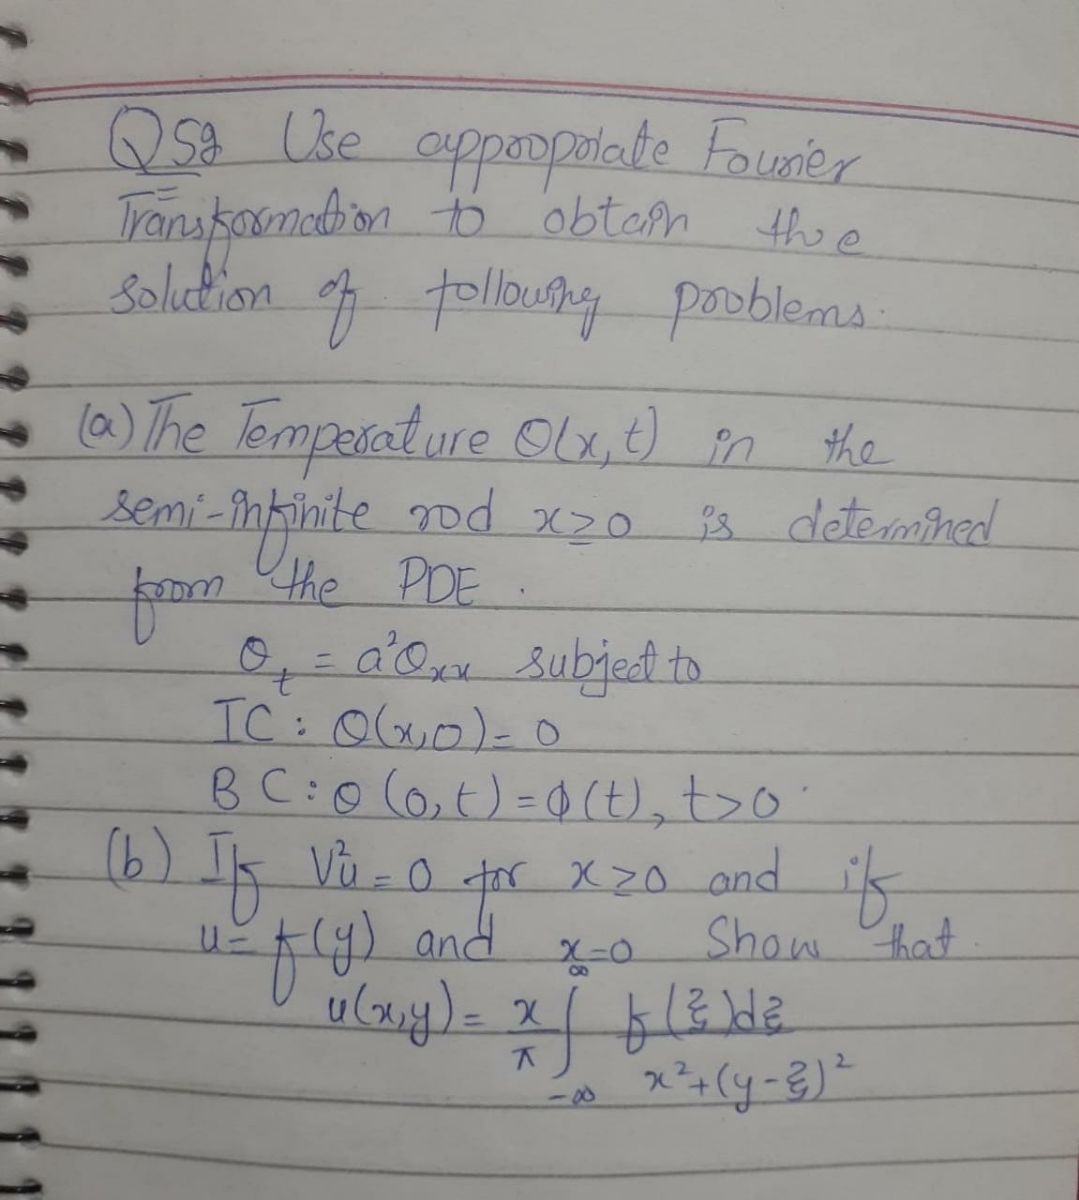 Q5g Use appropriate Fourier
Transformation to obtain the
solution of following problems.
(a) The Temperature θ(x,t) in the
semi-infinite rod x≥0 is determined
from the PDE.
θ_t = a²θ_xx subject to
IC: θ(x,0)=0
BC: θ(0,t)=φ(t), t>0
(b) If ∇²u=0 for x≥0 and if
u=f(y) and x=0 Show that
u(x,y)= x/π ∫_{-∞}^{∞} f(ξ)dξ / x²+(y-ξ)²